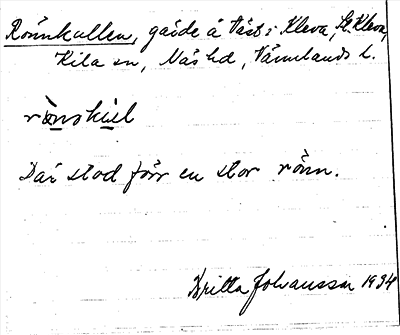 Rönnkullen, gärde å Västs: Kleva, St. Kleva,
Kila sn, Näs hd, Värmlands l.
Där stod förr en stor rönn.
Britta Johansson 1934